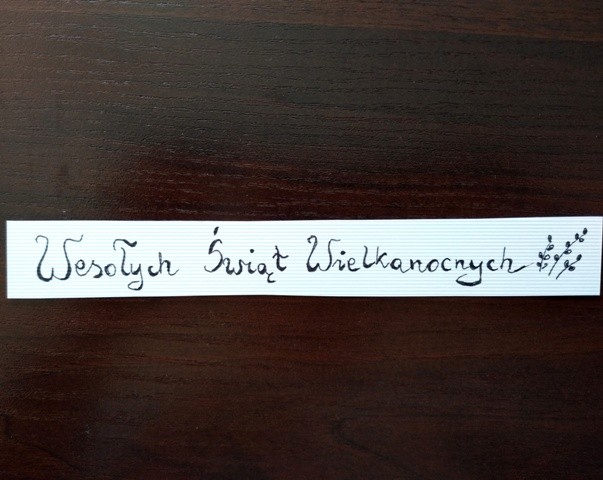 Wesołych Świąt Wielkanocnych